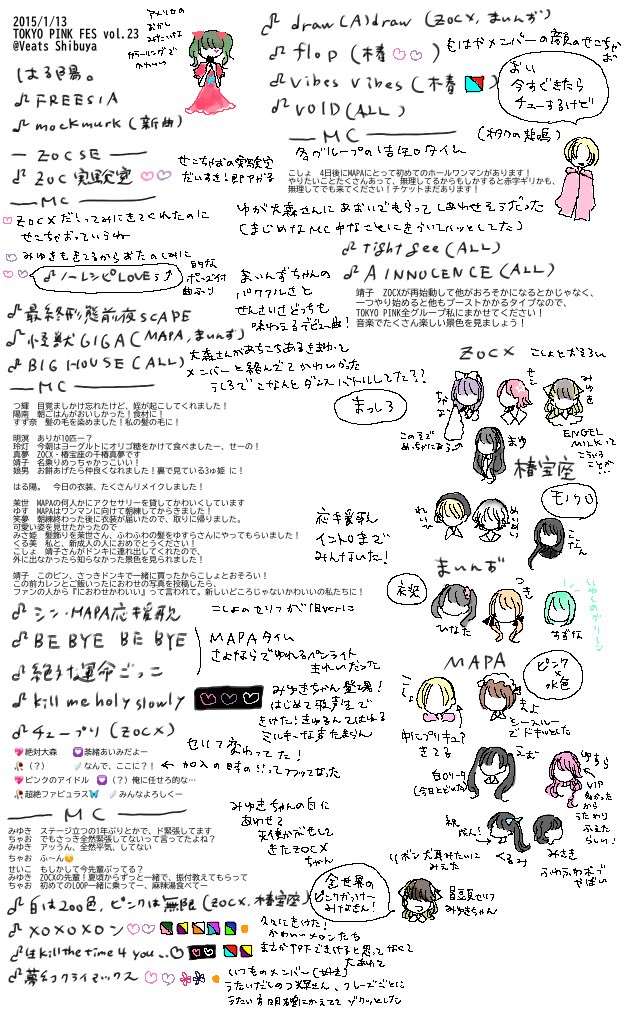 2015/1/13
TOKYO PINK FES vol.23
@Veats Shibuya
アメリカの
おかし
みたいな
カラーリングで
かわいい
はる陽。
FREESIA
mockmurk (新曲)
ZOCSE
ZOC実験室
せこちゃおの実験室
だいすき!即アガる
MC
ZOCXだ!ってみにきてくれたのに
せこちゃおっていうね
みゆきもきてるからおたのしみに
ノーレシピLOVEっ
的な
ポーズ付
曲ふり
まいんずちゃんの
パワフルさと
せんさいさどっちも
味わえるデビュー曲!
最終形態前夜SCAPE
怪獣GIGA (MAPA, まいんず)
BIG HOUSE (ALL)
大森さんがあちこちあるきまわって
メンバーと絡んでてかわいかった
MC
つ輝　目覚ましかけ忘れたけど、姪が起こしてくれました!
陽南　朝ごはんがおいしかった!食材に!
すず奈　髪の毛を染めました!私の髪の毛に!
明溟　ありが10匹ー?
玲灯　今朝はヨーグルトにオリゴ糖をかけて食べましたー、せーの!
真夢　ZOCX・椿宝座の千椿真夢です
靖子　名乗りめっちゃかっこいい!
娘男　お餅あげたら仲良くなれました!裏で見ている3ゅ姫 に!
はる陽。　今日の衣装、たくさんリメイクしました!
茉世　MAPAの何人かにアクセサリーを貸してかわいくしています
ゆす　MAPAはワンマンに向けて朝練してからきました!
笑夢　朝練終わった後に衣装が届いたので、取りに帰りました。
可愛い姿を見せたかったので
みさ姫　髪飾りを茉世さん、ふわふわの髪をゆすらさんにやってもらいました!
くる美　私と、新成人の人におめでとうください!
こしょ　靖子さんがドンキに連れ出してくれたので、
外に出なかったら知らなかった景色を見られました!
靖子　このピン、さっきドンキで一緒に買ったからこしょとおそろい!
この前カレンとご飯いったにおわせの写真を投稿したら、
ファンの人から『におわせかわいい』って言われて。新しいどころじゃないかわいいの私たちに!
シン・MAPA応援歌
こしょのセリフが1月verに
BE BYE BE BYE
絶対運命ごっこ
MAPAタイム
さよならでゆれるペンライト
きれいだった
kill me holy slowly
みゆきちゃん登場!
はじめて歌声生で
きけた!きゅるんてはねる
ミルキーな声たまらん
チュープリ (ZOCX)
セリフ変わってた!
絶対大森　茶緒あいみだよー
(？)　なんで、ここに?!
加入の時の!!ってアツくなった
ピンクのアイドル　(？)俺に任せろ的な…
超絶ファビュラス　みんなよろしくー
MC
みゆき　ステージ立つの1年ぶりとかで、ド緊張してます
ちゃお　でもさっき全然緊張してないって言ってたよね?
みゆき　アッうん、全然平気、してない
ちゃお　ふ〜ん
せいこ　もしかして今先輩ぶってる?
みゆき　ZOCXの先輩!夏頃からずっと一緒で、振付教えてもらって
ちゃお　初めてのLOOP一緒に乗ってー、麻辣湯食べてー
みゆきちゃんの白に
あわせて
天使かぶせして
きたZOCX
ちゃん
白は200色、ピンクは無限 (ZOCX, 椿宝座)
XOXOXOメロン
久々にきけた!
かわいいメロンたち
僕はkill the time 4 you..♡
まさかTPFできけると思ってなくて
夢幻クライマックス
いつものメンバー(好き)
draw(A)draw (ZOCX, まいんず)
flop (椿)
vibes vibes (椿)
VOID (ALL)
もはやメンバーの顔のせこちゃお
おい
今すぐきたら
チューするけど
(オタクの悲鳴)
MC
各グループの告知タイム
こしょ　4日後にMAPAにとって初めてのホールワンマンがあります!
やりたいことたくさんあって、無理してるからもしかすると赤字ギリかも、
無理してでも来てください!チケットまだあります!
ゆが大森さんにあおいでもらってしあわせそうだった
tight gee (ALL)
A INNOCENCE (ALL)
靖子　ZOCXが再始動して他がおろそかになるとかじゃなく、
一つやり始めると他もブーストかかるタイプなので、
TOKYO PINK全グループ私にまかせてください!
音楽でたくさん楽しい景色を見ましょう!
ZOCX
こしょとおそろい
ちゃお
せこ
みゆき
まっしろ
まゆ
ENGEL
MILKって
こういう
ことか…
椿宝座
モノクロ
れいひ
めいめい
こなん
応援歌
イントロまで
みんないた!
まいんず
衣装
ひなた
つき
すずな
いやしのグリーン
MAPA
ピンク
×
水色
こしょ
中にプリキュア
きてる
まよ
シースルー
でドキッとした
えむ
ゆすら
くるみ
みさき
ふわふわボブ
やばい
リボン犬耳みたいに
みえた
全世界の
ピンクがつけー
みなさん!
冒頭セリフ
みゆきちゃん